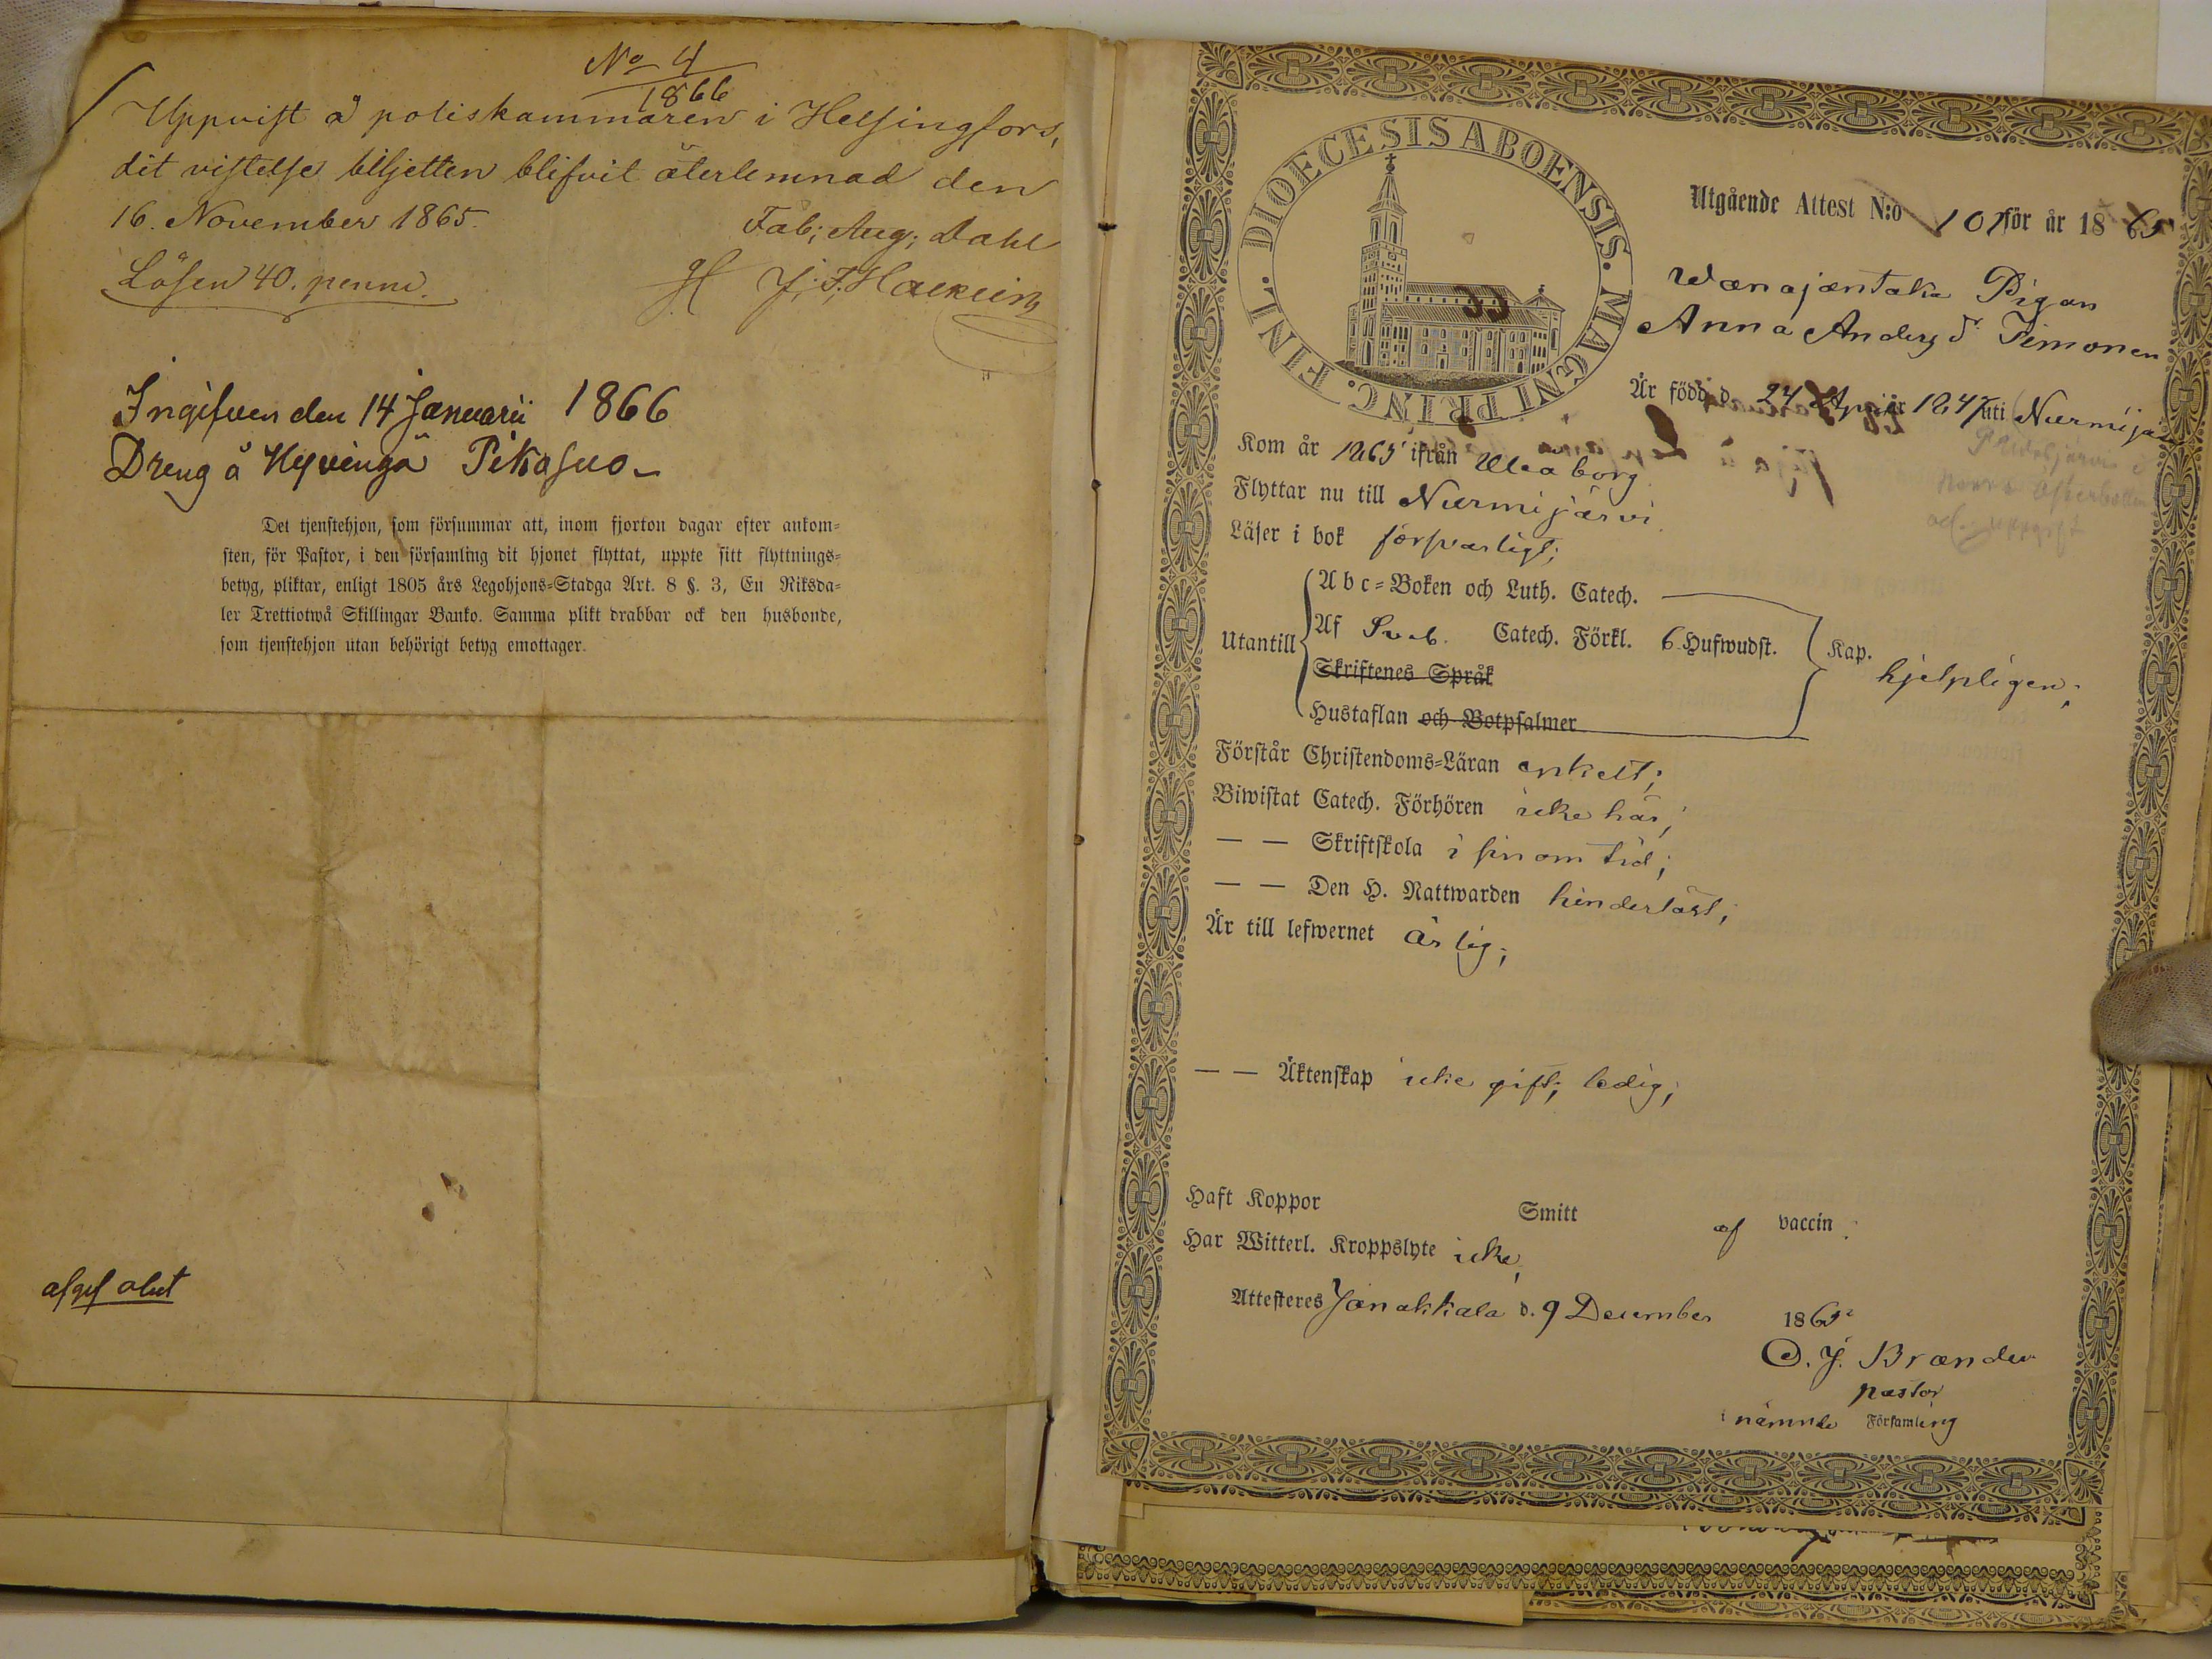 No 4
1866
Uppvist å poliskammaren i Helsingfors,
dit vistelse biljetten blifvit återlemnad den
16. November 1865.
Fab; Aug; Dahl
Lösen 40. penni.
Ingifven den 14 Januarii 1866
Dreng å Hyvingä Pikasuo
Det tjenstehjon, som försummar att, inom fjorton dagar efter ankom=
sten, för Pastor, i den församling dit hjonet flyttat, uppte sitt flyttnings=
betyg, pliktar, enligt 1805 års Legohjons=Stadga Art. 8 §. 3, En Riksda=
ler Trettiotwå Skillingar Banko. Samma plikt drabbar ock den husbonde,
som tjenstehjon utan behörigt betyg emottager.
DIOECESIS ABOENSIS. MAGNI PRINC. FINL.
Utgående Attest N:o 101 för år 1865
Wänajäntaka Pigan
Anna Andersdr Timonen
Är född d. 24 Apr år 1847 uti Nurmijärvi
Kom år 1865 ifrån Uleaborg
Flyttar nu till Nurmijärvi.
Läser i bok försvarligt;
Utantill
Abc=Boken och Luth. Catech.
Af Sveb. Catech. Förkl. 6 Hufwudst.
Skriftenes Språk
Hustaflan och Botpsalmer
Kap.
hjelpligen;
Förstår Christendoms=Läran enkelt;
Biwistat Catech. Förhören icke här;
— — Skriftskola i sinom tid;
— — Den H. Nattwarden hinderlöst;
Är till lefwernet ärlig;
— — Äktenskap icke gift, ledig;
Haft Koppor Smitt af vaccin.
Har Witterl. Kroppslyte icke,
Attesteres Janakkala d. 9 December 1865
O. J. Brander
pastor
i nämnde Församling